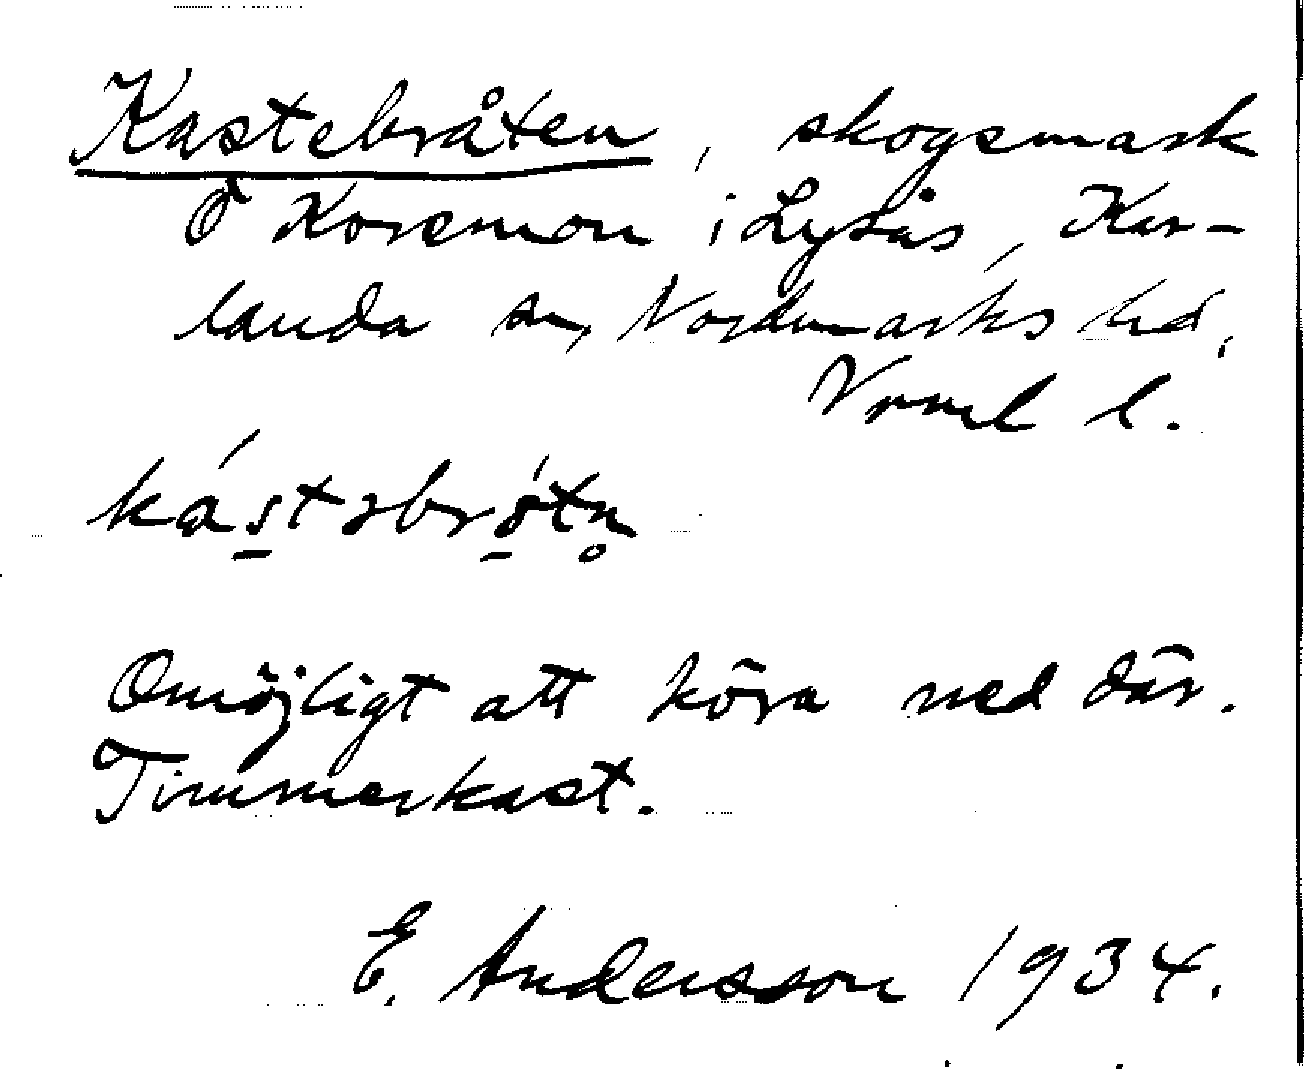 Kastebråten, skogsmark
Ö Korsmon i Lysås, Kar-
landa sn, Nordmarks hd,
Vrml l.
kástəbrǿtn̥
Omöjligt att köra ned där.
Timmerkast.
E. Andersson 1934.